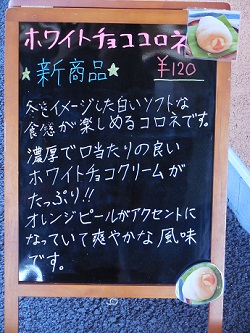 ホワイトチョココロネ
★新商品★ ¥120
冬をイメージした白いソフトな
食感が楽しめるコロネです。
濃厚で口当たりの良い
ホワイトチョコクリームが
たっぷり!!
オレンジピールがアクセントに
なっていて爽やかな風味
です。